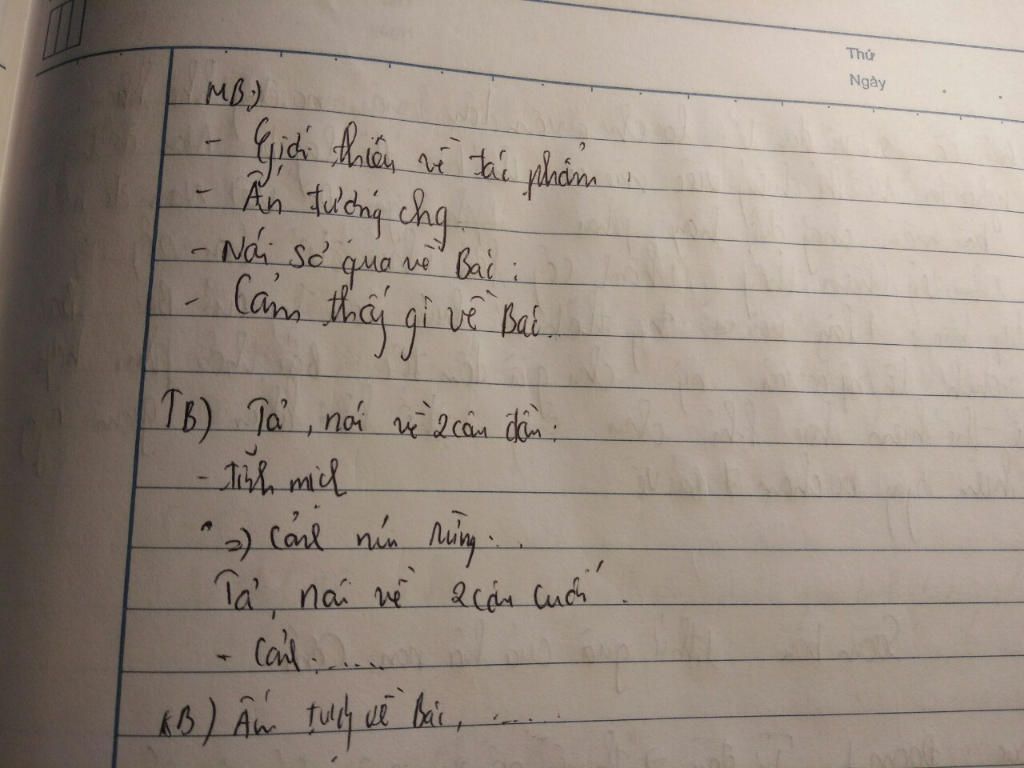 Thứ
Ngày
MB:)
- Giới thiệu về tác phẩm.
- Ấn tượng chg.
- Nói sơ qua về Bài:
- Cảm thấy gì về Bài.
TB) Tả, nói về 2 câu đầu:
- tĩnh mịch
=) Cảnh núi rừng...
Tả, nói về 2 câu cuối.
- Cảnh.....
KB) Ấn tượng về Bài, .....